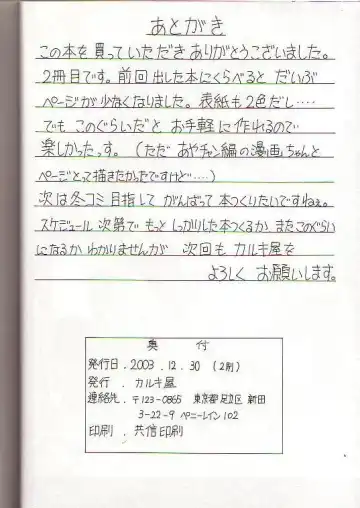 あとがき
この本を買っていただきありがとうございました。
2冊目です。前回出した本にくらべると だいぶ
ページが少なくなりました。表紙も2色だし‥‥
でも このぐらいだと お手軽に作れるので
楽しかったっす。(ただ あやチャン編の漫画ちゃんと
ページとって描きたかったですけど‥‥)
次は冬コミ目指して がんばって 本つくりたいですねぇ。
スケジュール次第で もっと しっかりした本つくるか またこのぐらい
になるか わかりませんが 次回も カルキ屋を
よろしく お願いします。
奥 付
発行日.2003.12.30 (2刷)
発行 . カルキ屋
連絡先.〒123-0865 東京都足立区 新田
3-22-9 ペニーレイン102
印刷 . 共信印刷